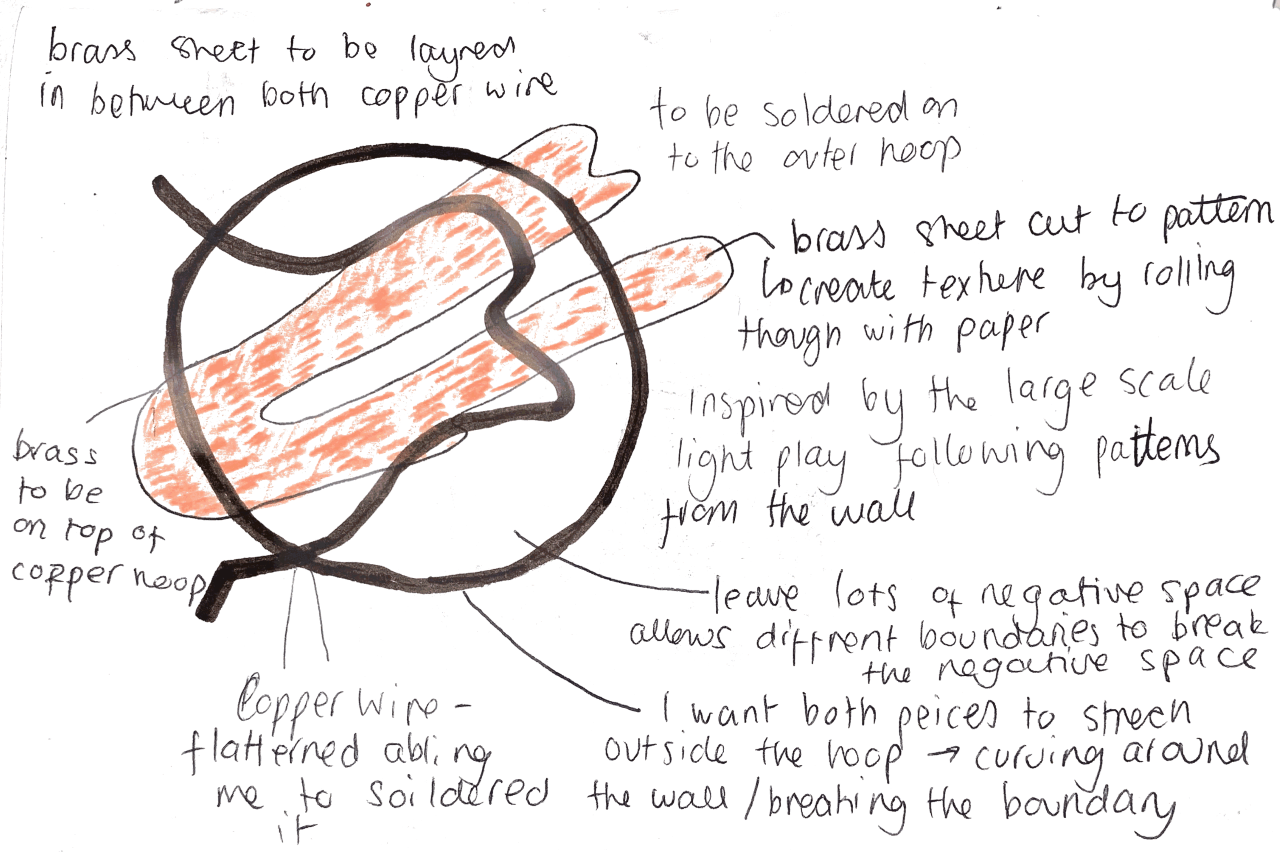 brass sheet to be layred
in between both copper wire
to be soldered on
to the outer hoop
brass sheet cut to pattern
↳ create texture by rolling
though with paper
inspired by the large scale
light play following patterns
from the wall
brass
to be
on top of
copper hoop
leave lots of negative space
allows diffrent boundaries to break
the negative space
Copper wire -
flatterned abling
me to soildered
it
I want both peices to strech
outside the hoop → curving around
the wall / breaking the boundary